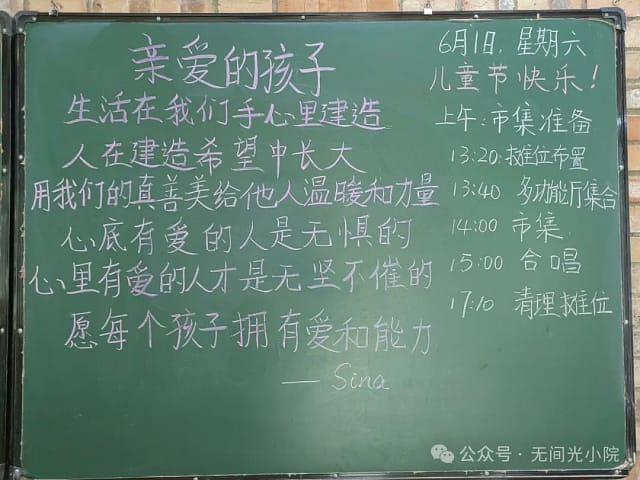 亲爱的孩子
生活在我们手心里建造
人在建造希望中长大
用我们的真善美给他人温暖和力量
心底有爱的人是无惧的
心里有爱的人才是无坚不催的
愿每个孩子拥有爱和能力
— Sina
6月1日,星期六
儿童节快乐!
上午:市集准备
13:20:摊位布置
13:40 多功能厅集合
14:00 市集
15:00 合唱
17:10 清理摊位
公众号·无间光小院